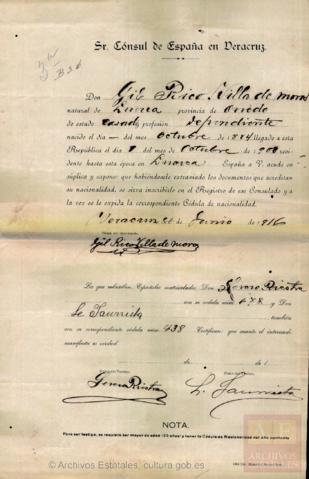 Sr. Cónsul de España en Veracruz.
Don Gil Rico Villademoros
natural de Luarca provincia de Oviedo
de estado casado profesión dependiente
nacido el día - del mes Octubre de 1884 llegado a esta
República el día 8 del mes de Octubre de 1908 resi-
dente hasta esta época en Luarca España a V. acude en
súplica y expone: que habiéndosele extraviado los documentos que acreditan
su nacionalidad, se sirva inscribirle en el Registro de ese Consulado y a
la vez se le expida la correspondiente Cédula de nacionalidad.
Veracruz 26 de Junio de 1916
Gil Rico Villademoros
Los que subscriben, Españoles matriculados: Don Riestra
con su cédula núm. 478 y Don
también
con su correspondiente cédula núm. 438 Certifican: que cuanto el interesado
manifiesta es verdad.
de de 1
Riestra
L.
NOTA.
Para ser testigo, se requiere ser mayor de edad (23 años) y tener la Cédula de Nacionalidad del Año corriente
© Archivos Estatales, cultura.gob.es
ARCHIVOS